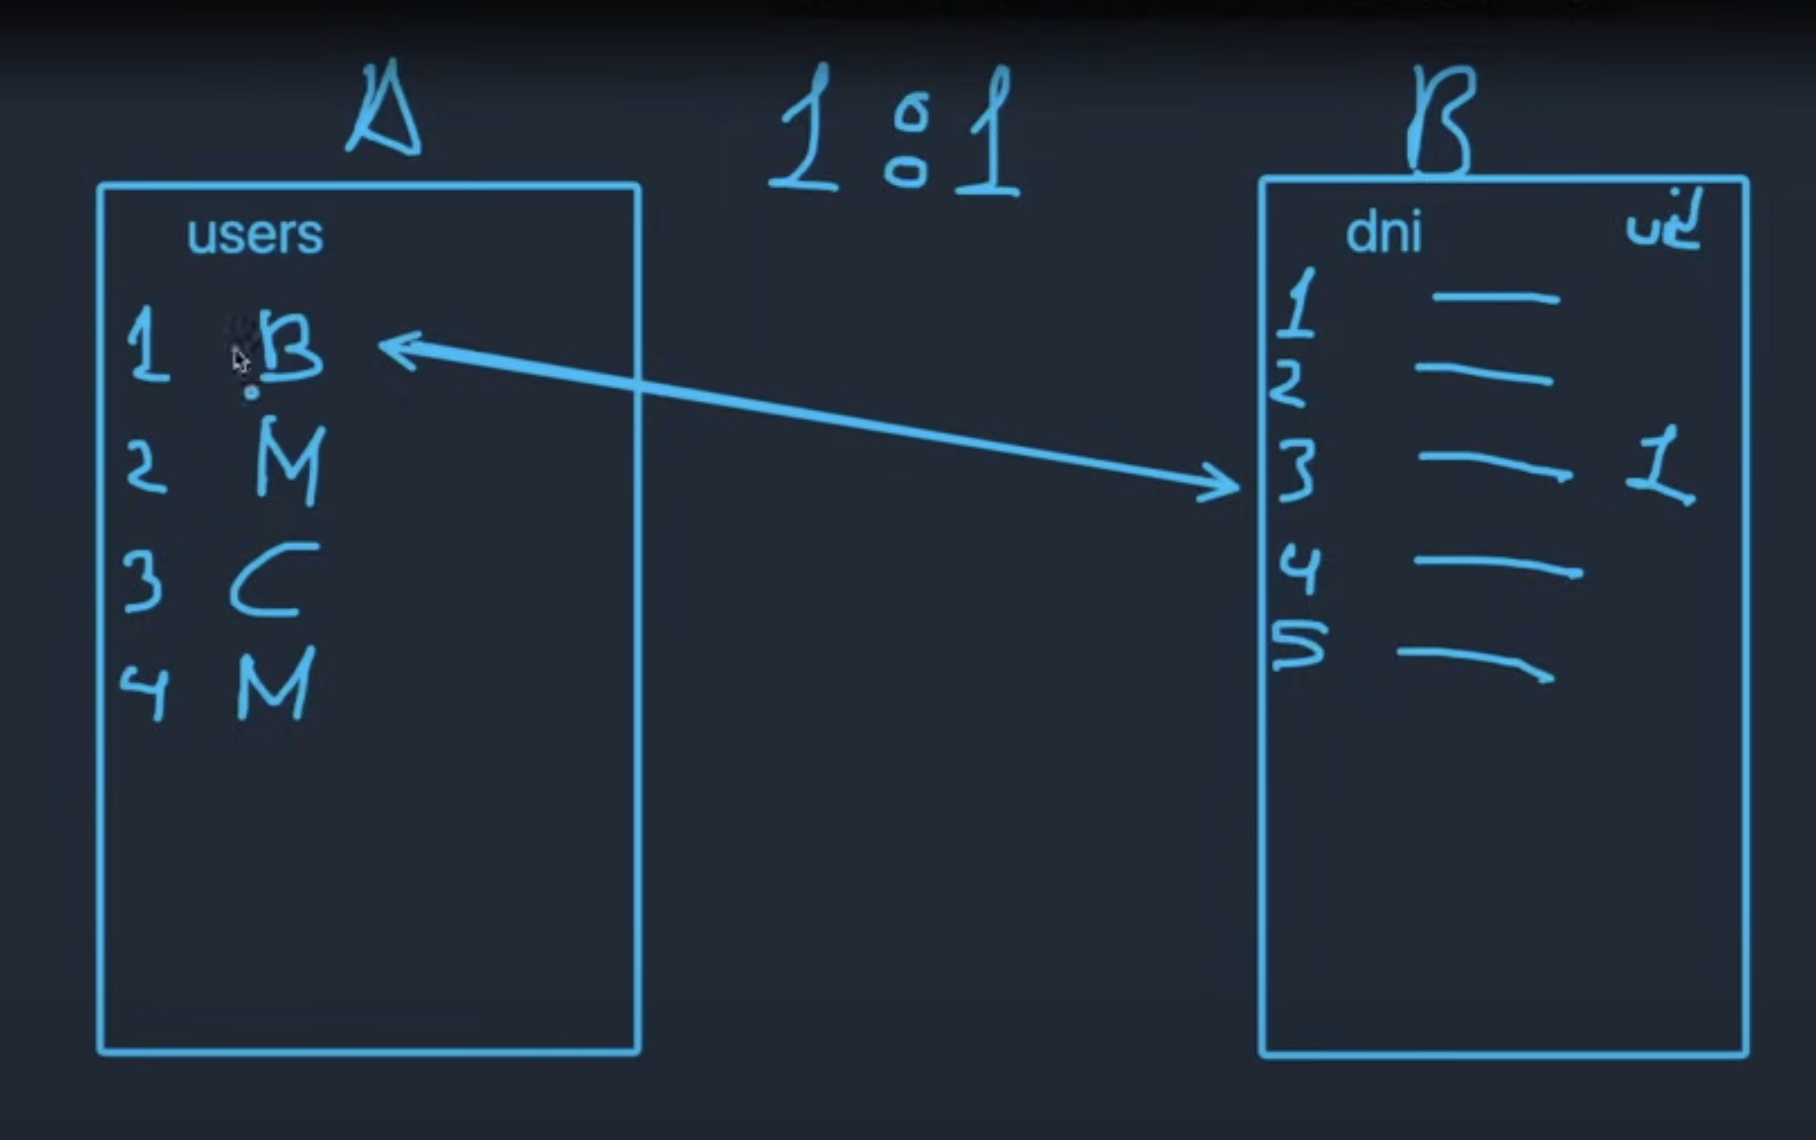 A 1:1 B
users
1 B
2 M
3 C
4 M
dni uid
1
2
3 1
4
5